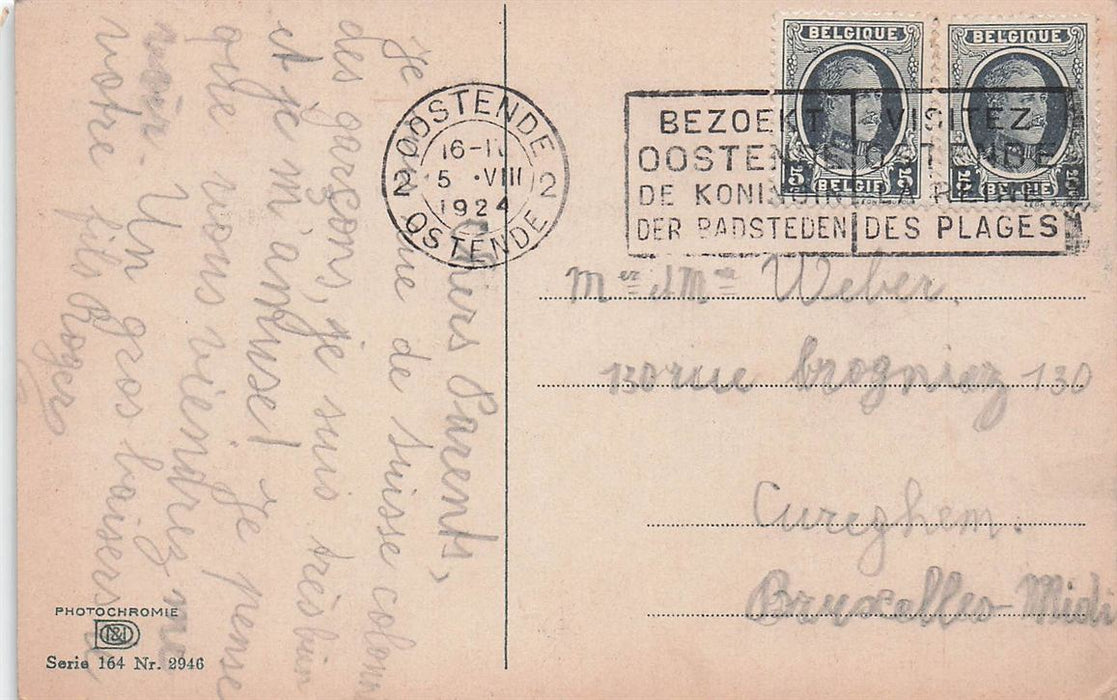 BELGIQUE
BELGIQUE
5
5
BELGIË
BELGIË
OOSTENDE
16-
2 5 VIII 2
1924
OSTENDE
BEZOEKT
OOSTENDE
DE KONINGIN
DER BADSTEDEN
VISITEZ
OSTENDE
LA REINE
DES PLAGES
Chiers Parents,
Je de suisse
des garçons, je suis très bien
et je m'amuse! Je pense
que vous viendrez me
voir. Un gros baisers de
votre fils Rogers
Mer et Mme Weber.
130 rue brogniez 130
Cureghem.
Bruxelles Midi
PHOTOCHROMIE
Serie 164 Nr. 2946